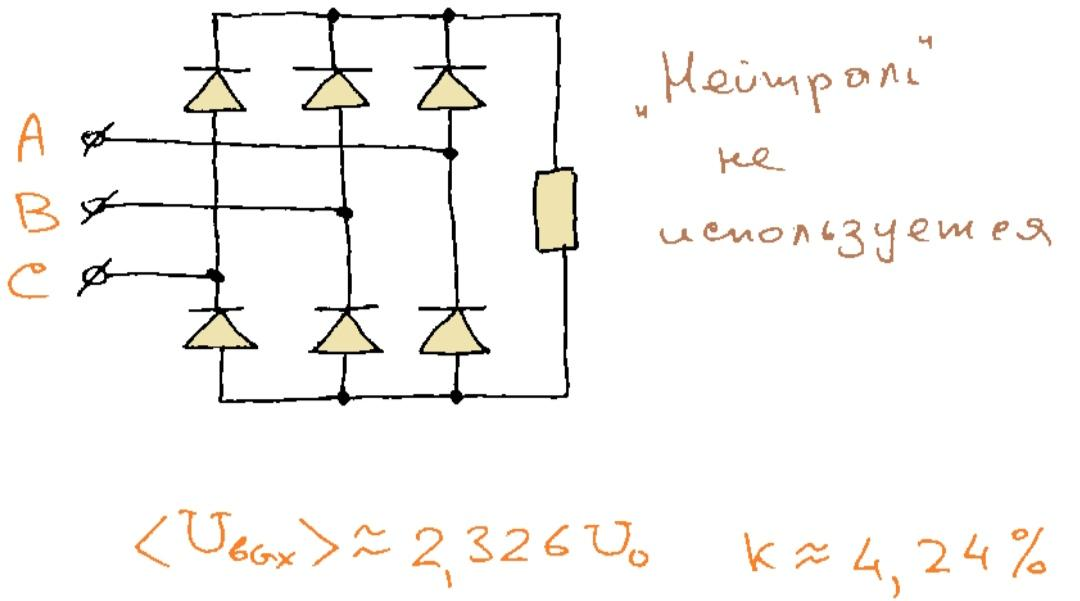 A
B
C
„Нейтраль"
не
используется
<Uвых>≈2,326U₀ k≈4,24%